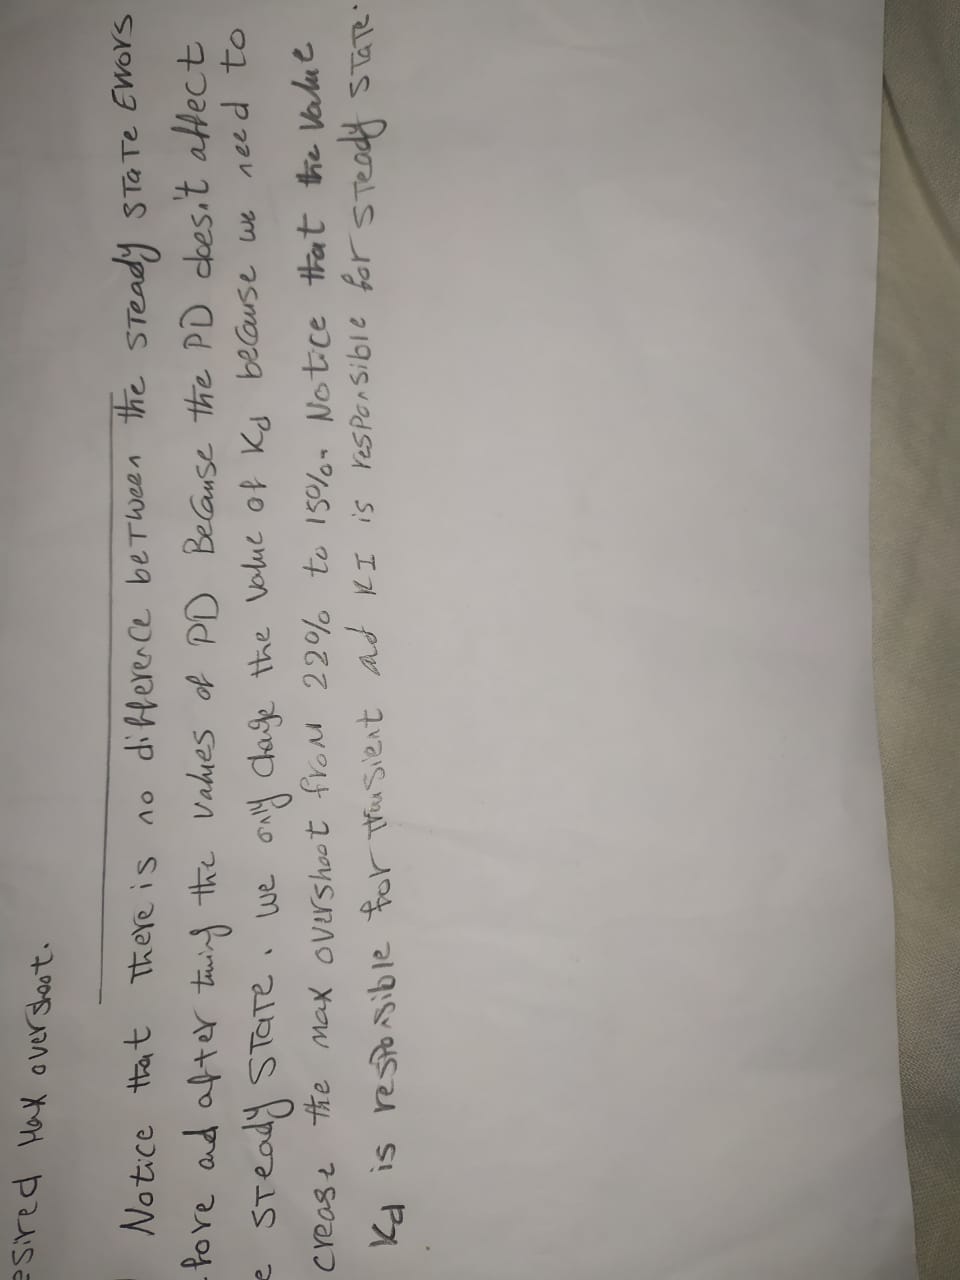 esired Max overshoot.
Notice that There is no difference beTween the STeady STaTe Errors
fore and after tuning the values of PD Because the PD does't affect
e STeady STaTe. we only change the value of Kd because we need to
crease the max overshoot from 22% to 15%. Notice that the value
Kd is responsible for Transient and KI is responsible for STeady STaTe.